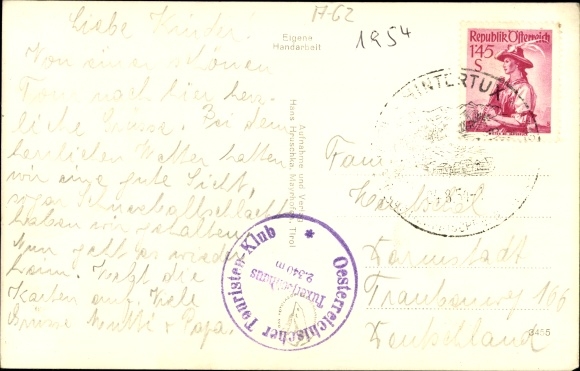 Liebe Kinder!
Von einer schönen
Tour nach hier herz-
liche Grüsse. Bei dem
herrlichen Wetter hatten
wir eine gute Sicht,
sogar Schneeballschlacht
haben wir gehalten.
Nun geht es wieder
Hebt die
Karten auf. Viele
Grüsse Mutti & Papa.
A-62
1954
Eigene
Handarbeit
Aufnahme und Verlag
Hans Hruschka, Mayrhofen, Tirol
Republik Österreich
1'45
S
HINTERTUX
Oesterreichischer Touristen-Klub
Tuxerjochhaus
2.340 m
Darmstadt
Traubenweg 166
Deutschland
8455